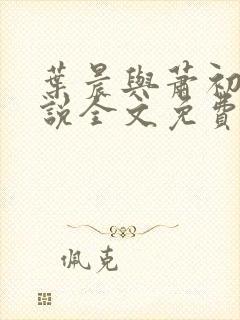 葉晨與蕭初
說全文免費
佩克